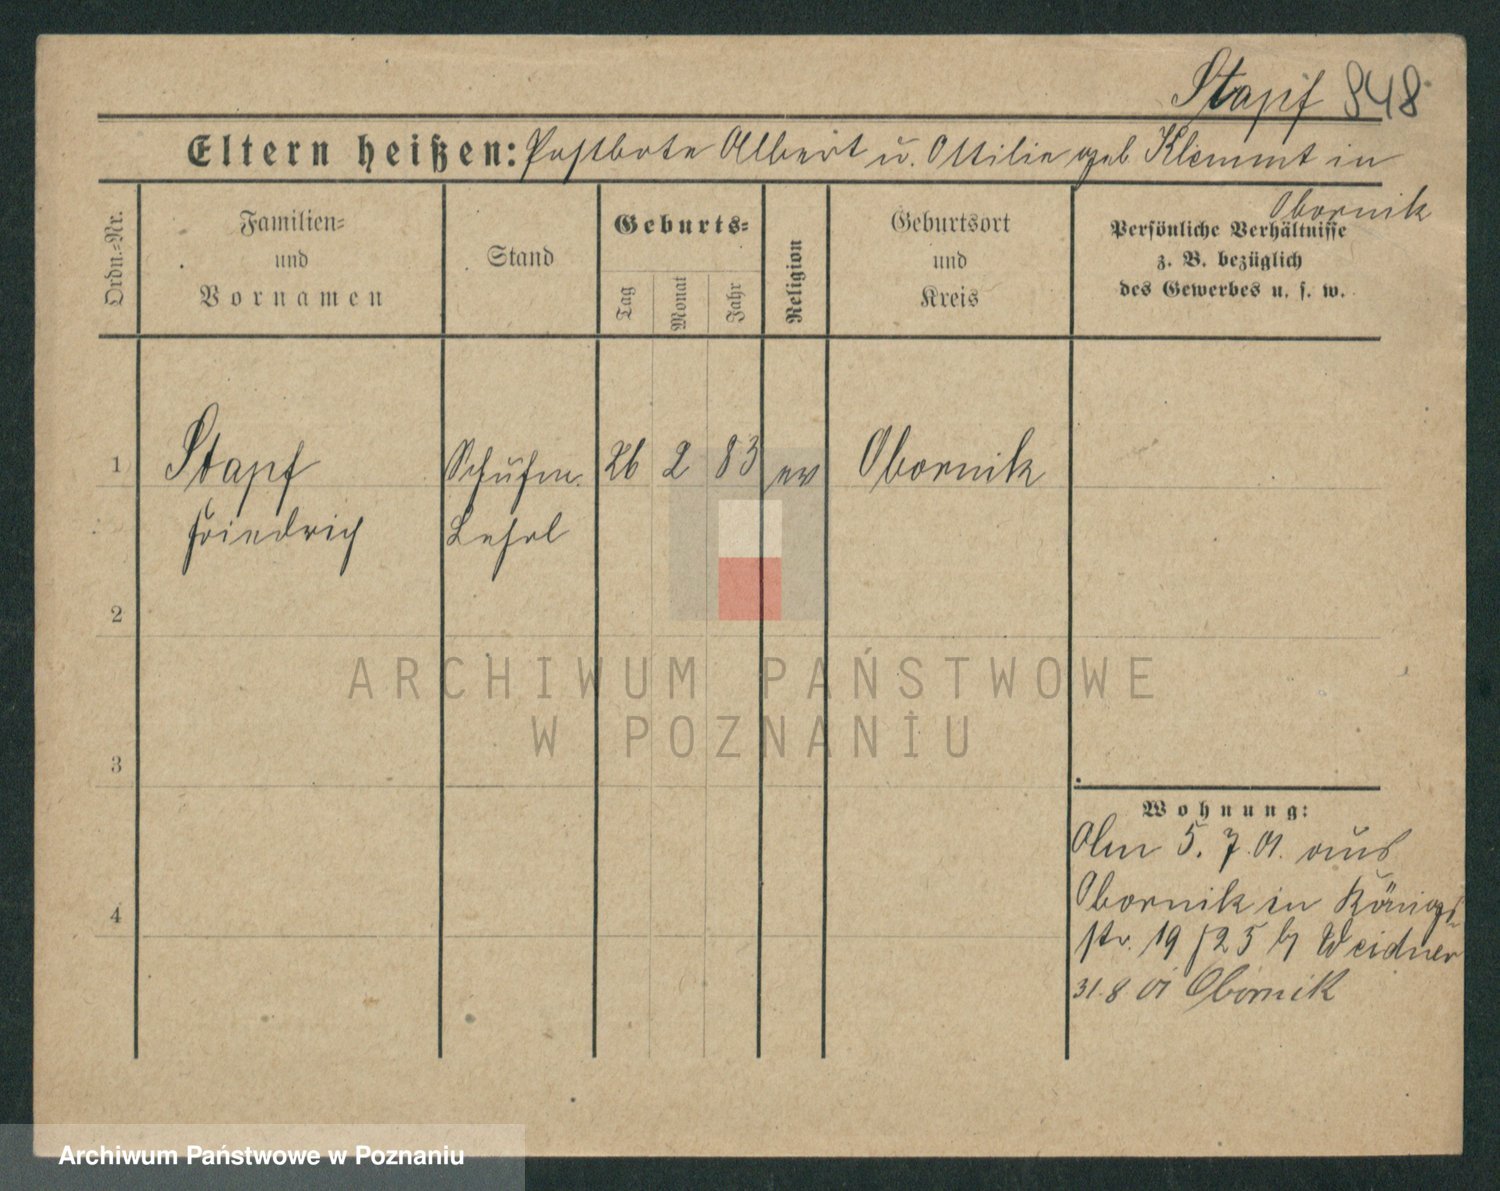 Stapf 848
Eltern heißen: Postbote Albert u. Ottilie geb Klemmt in
Obornik
Ordn.-Nr.
Familien-
und
Vornamen
Stand
Geburts-
Tag
Monat
Jahr
Religion
Geburtsort
und
Kreis
Persönliche Verhältnisse
z. B. bezüglich
des Gewerbes u. s. w.
1 Stapf Schuhm. 26 2 83 ev Obornik
Friedrich Lehrl
2
3
4
Wohnung:
Am 5. 7. 01. aus
Obornik in Königs
str. 19/25 b/ Weidner
31. 8 01 Obornik
ARCHIWUM PAŃSTWOWE
W POZNANIU
Archiwum Państwowe w Poznaniu